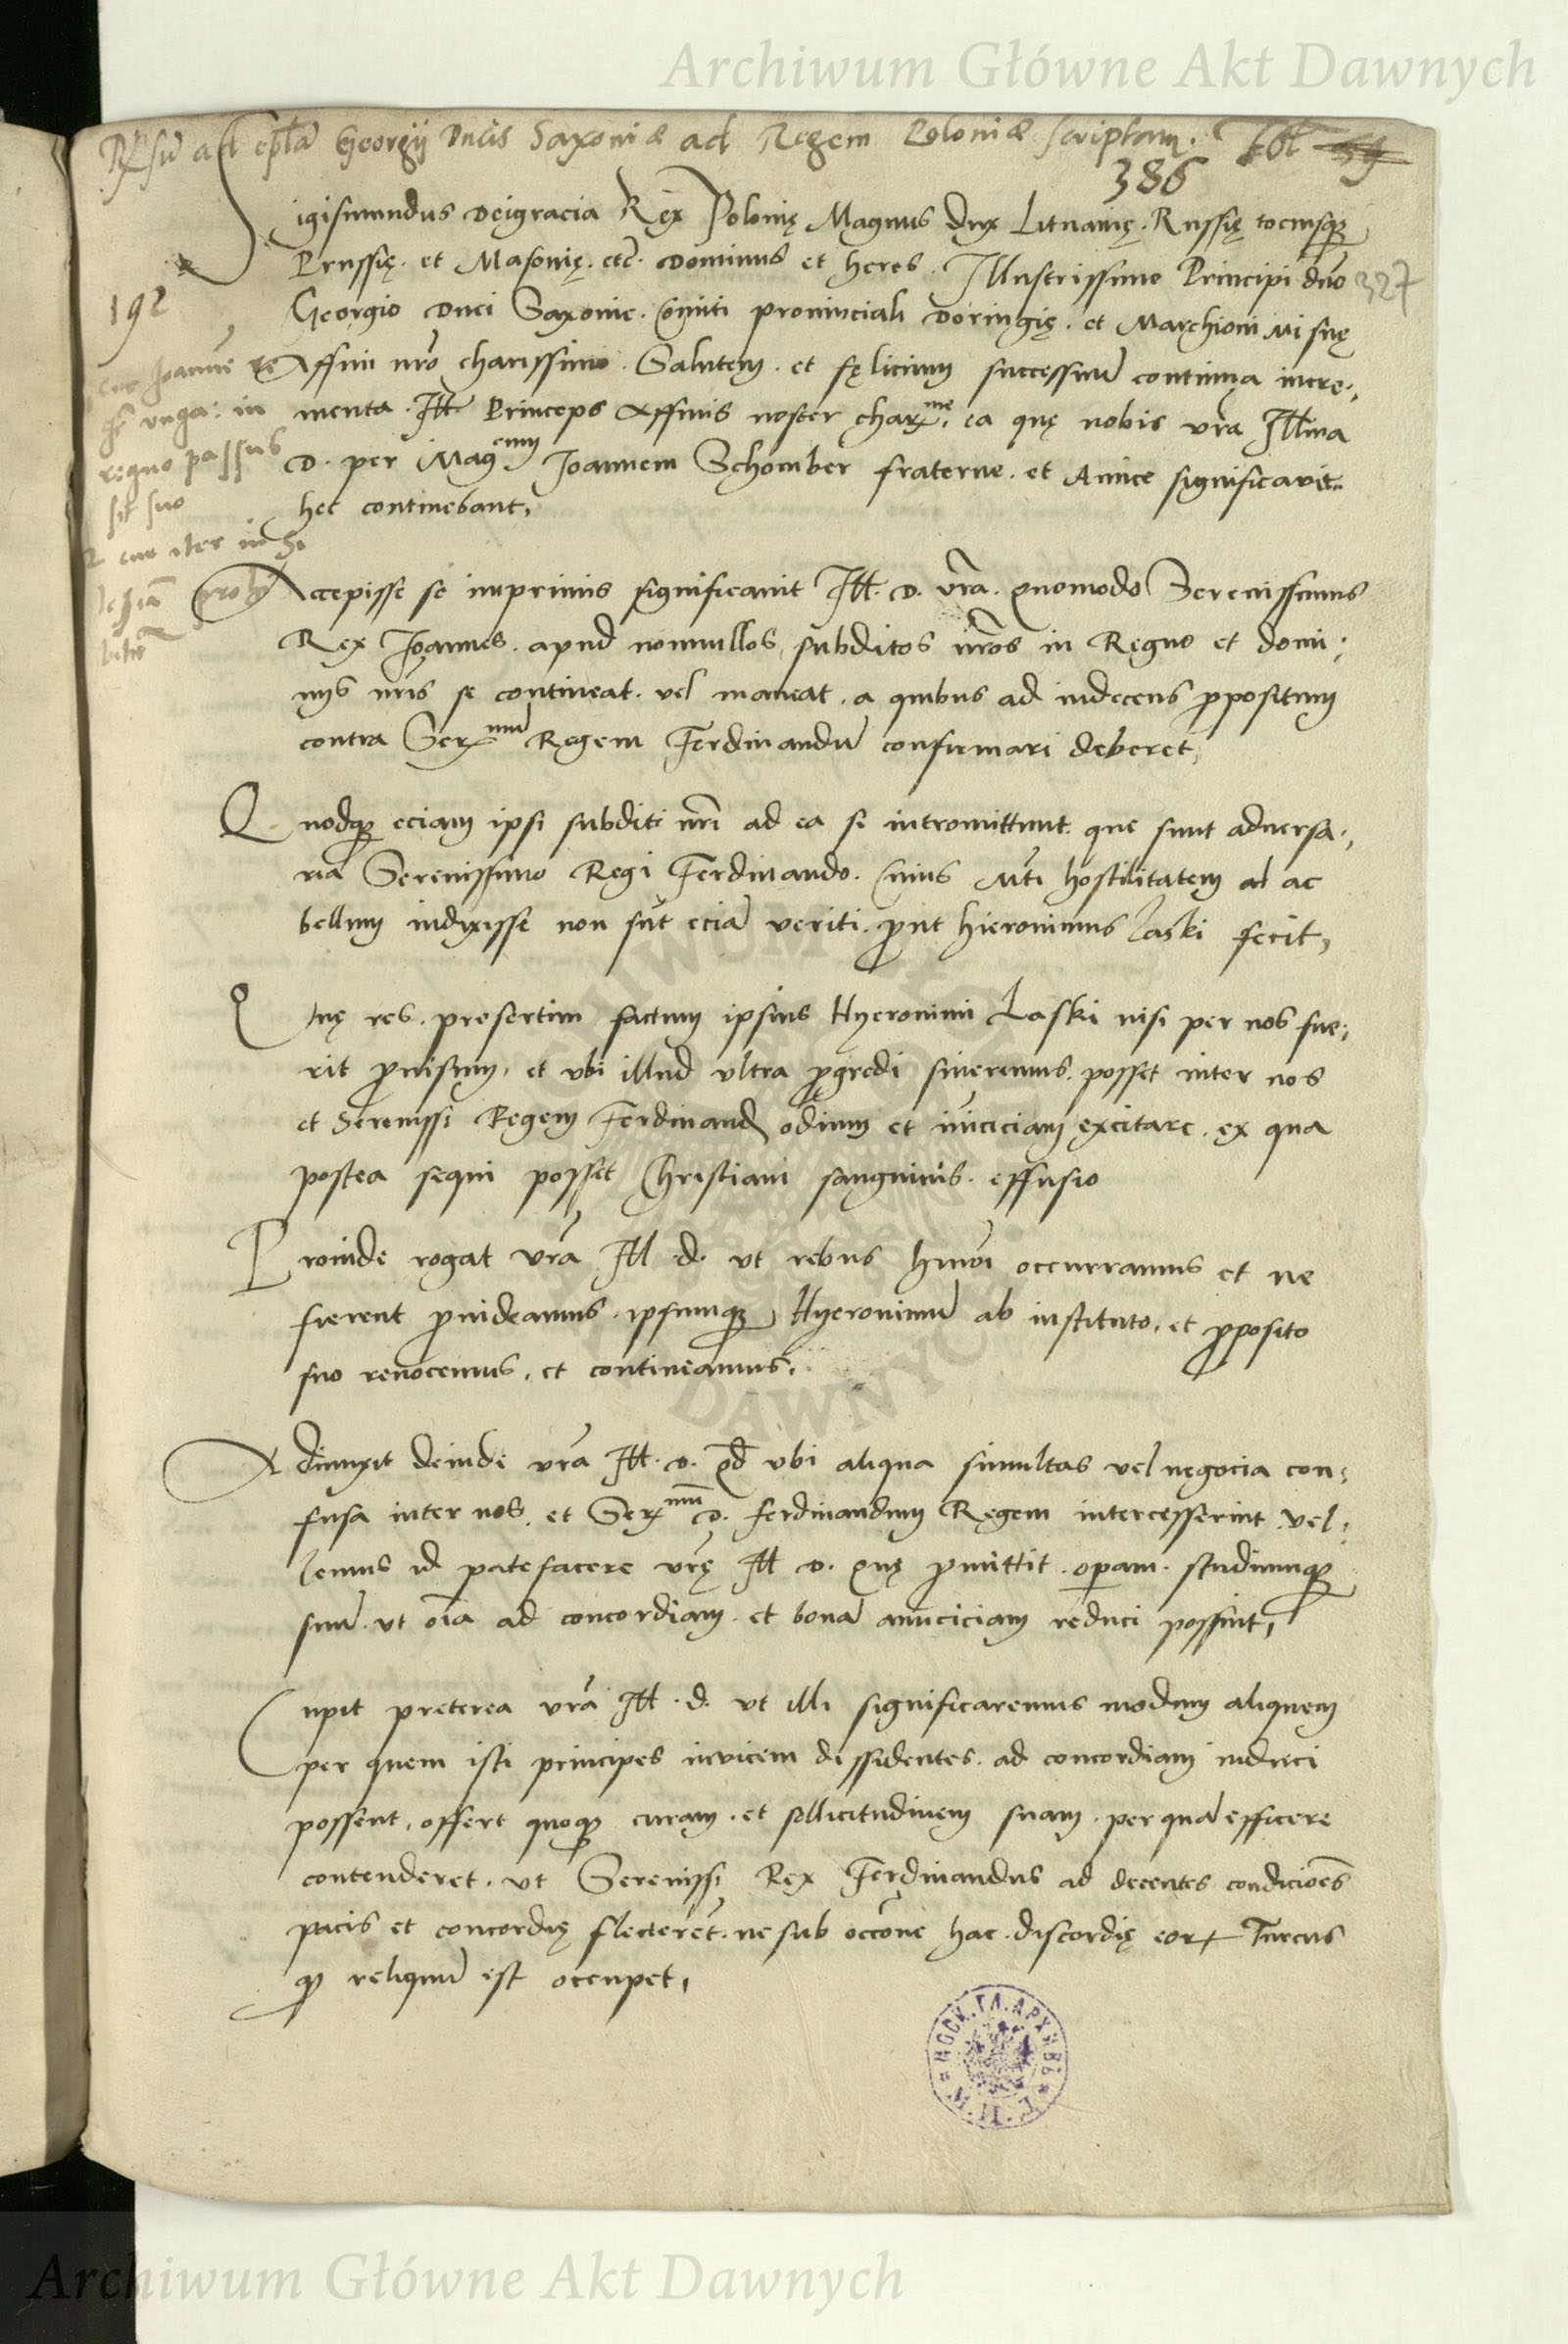 Archiwum Główne Akt Dawnych
Rsū ad eplā Georgij Ducis Saxoniæ ad Regem Poloniæ scriptam.
386
Sigismundus Deigracia Rex Polonię Magnus dux Lituanię. Russię tociusque
Prussię. et Masovię. etc. Dominus et heres. Illustrissimo Principi dno 327
Georgio Duci Saxonie. Comiti provinciali Doringię. et Marchioni Misnę
192
Affini nro charissimo. Salutem. et fęlicium successuū continua incre,
menta. Ill. Princeps Affinis noster charme. ea quę nobis vra Illma
D. per Magcum Joannem Schomber fraterne. et Amice significavit.
hec continebant,
cur Joannē re
gē Unga: in
regno passus
sit suo
et cur iter in Si
lesiā prohi
Accepisse se inprimis significauit Ill. D. vra. quomodo Serenissimus
Rex Joannes. apud nonnullos subditos nros in Regno et domi,
nijs nris se contineat. vel maneat. a quibus ad indecens propositum
contra Sermum Regem Ferdinandū confirmari deberet,
Quodque eciam ipsi subditi nri ad ea se intromittunt que sunt adversa,
ria Serenissimo Regi Ferdinando. Cuius Mti hostilitatem al ac
bellum indixisse non sūt eciā veriti. prout Hieronimus Laski fecit,
Quę res. presertim factum ipsius Hyeronimi Laski nisi per nos fue,
rit provisum, et vbi illud vltra progredi sineremus. posset inter nos
et Serenissi Regem Ferdinand odium et inimiciciam excitare. ex qua
postea sequi posset Christiani sanguinis. effusio
Proinde rogat vra Ill. d. vt rebus hmoi occurramus et ne
fierent provideamus. ipsumque Hyeronimū ab instituto, et proposito
suo revocemus, et contineamus,
Adiunxit deinde vra Ill. D. qd vbi aliqua simultas vel negocia con,
fusa inter nos. et Sermum D. Ferdinandum Regem intercesserint. vel,
lemus id patefacere vrę Ill D. quę promittit. operam. studiumque
suū. vt oīa ad concordiam. et bonā amiciciam reduci possint,
Cupit preterea vra Ill. d. vt illi significaremus modum aliquem
per quem isti principes invicem dissidentes. ad concordiam induci
possent, offert quoque curam. et sollicitudinem suam. per quā efficere
contenderet. vt Serenissi Rex Ferdinandus ad decentes condicioēs
pacis et concordię flecteret. ne sub occōne hac. discordię eor Turcus
qd reliquū est occupet,
МОСК. ГЛ. АРХИВЪ
Archiwum Główne Akt Dawnych